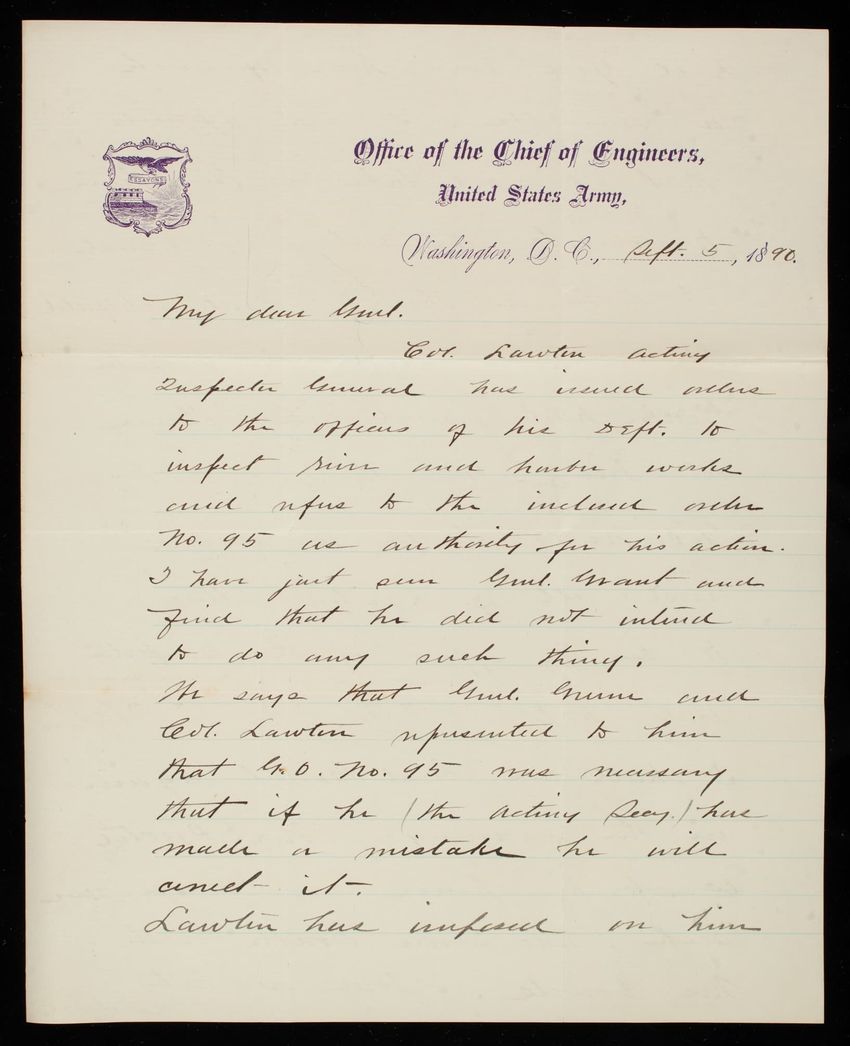 ESSAYONS
Office of the Chief of Engineers,
United States Army,
Washington, D. C., Sept. 5, 1890.
My dear Genl.
Col. Lawton acting
Inspector General has issued orders
to the officers of his Dept. to
inspect river and harbor works
and refers to the inclosed order
No. 95 as authority for his action.
I have just seen Genl. Grant and
find that he did not intend
to do any such thing.
He says that Genl. and
Col. Lawton represented to him
that G.O. No. 95 was necessary
that if he (the acting Secy.) has
made a mistake he will
correct it.
Lawton has imposed on him